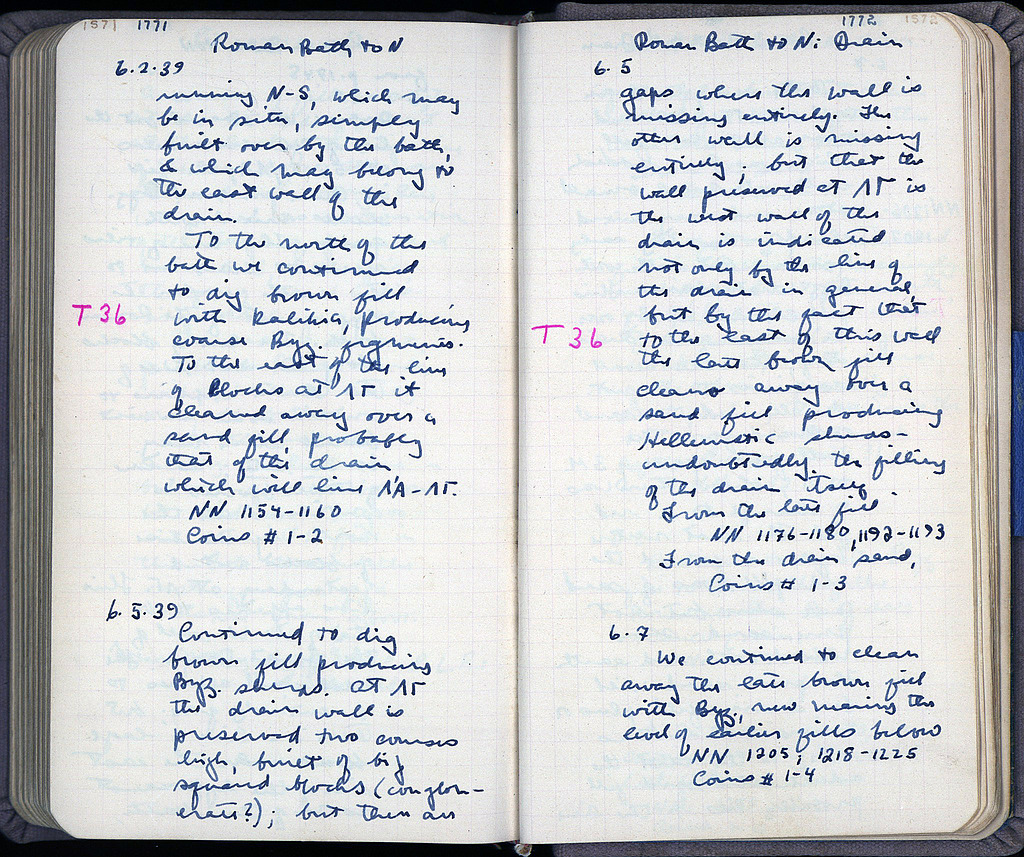 1571 1771
Roman Bath to N
6.2.39
running N-S, which may
be in situ, simply
built over by the bath,
& which may belong to
the east wall of the
drain.
To the north of the
bath we continued
to dig brown fill
T 36
with Kalibia, producing
coarse Byz. figments.
To the east of the line
of blocks at ΛΓ it
cleared away over a
sand fill, probably
that of this drain
which will line ΛA-ΛΓ.
NN 1154-1160
Coins # 1-2
6.5.39
Continued to dig
brown fill producing
Byz. sherds. At ΛΓ
the drain wall is
preserved two courses
high, built of big
squared blocks (conglom-
erate?); but there are
1772 1572
Roman Bath to N: Drain
6.5
gaps where the wall is
missing entirely. The
other wall is missing
entirely; but that the
wall preserved at ΛΓ is
the west wall of the
drain is indicated
not only by the line of
the drain in general,
but by the fact that
T 36
to the east of this wall
the late brown fill
cleans away over a
sand fill producing
Hellenistic sherds-
undoubtedly the filling
of the drain itself.
From the late fill
NN 1176-1180, 1192-1193
From the drain sand,
Coins # 1-3
6.7
We continued to clean
away the late brown fill
with Byz., now nearing the
level of earlier fills below
NN 1205, 1218-1225
Coins # 1-4